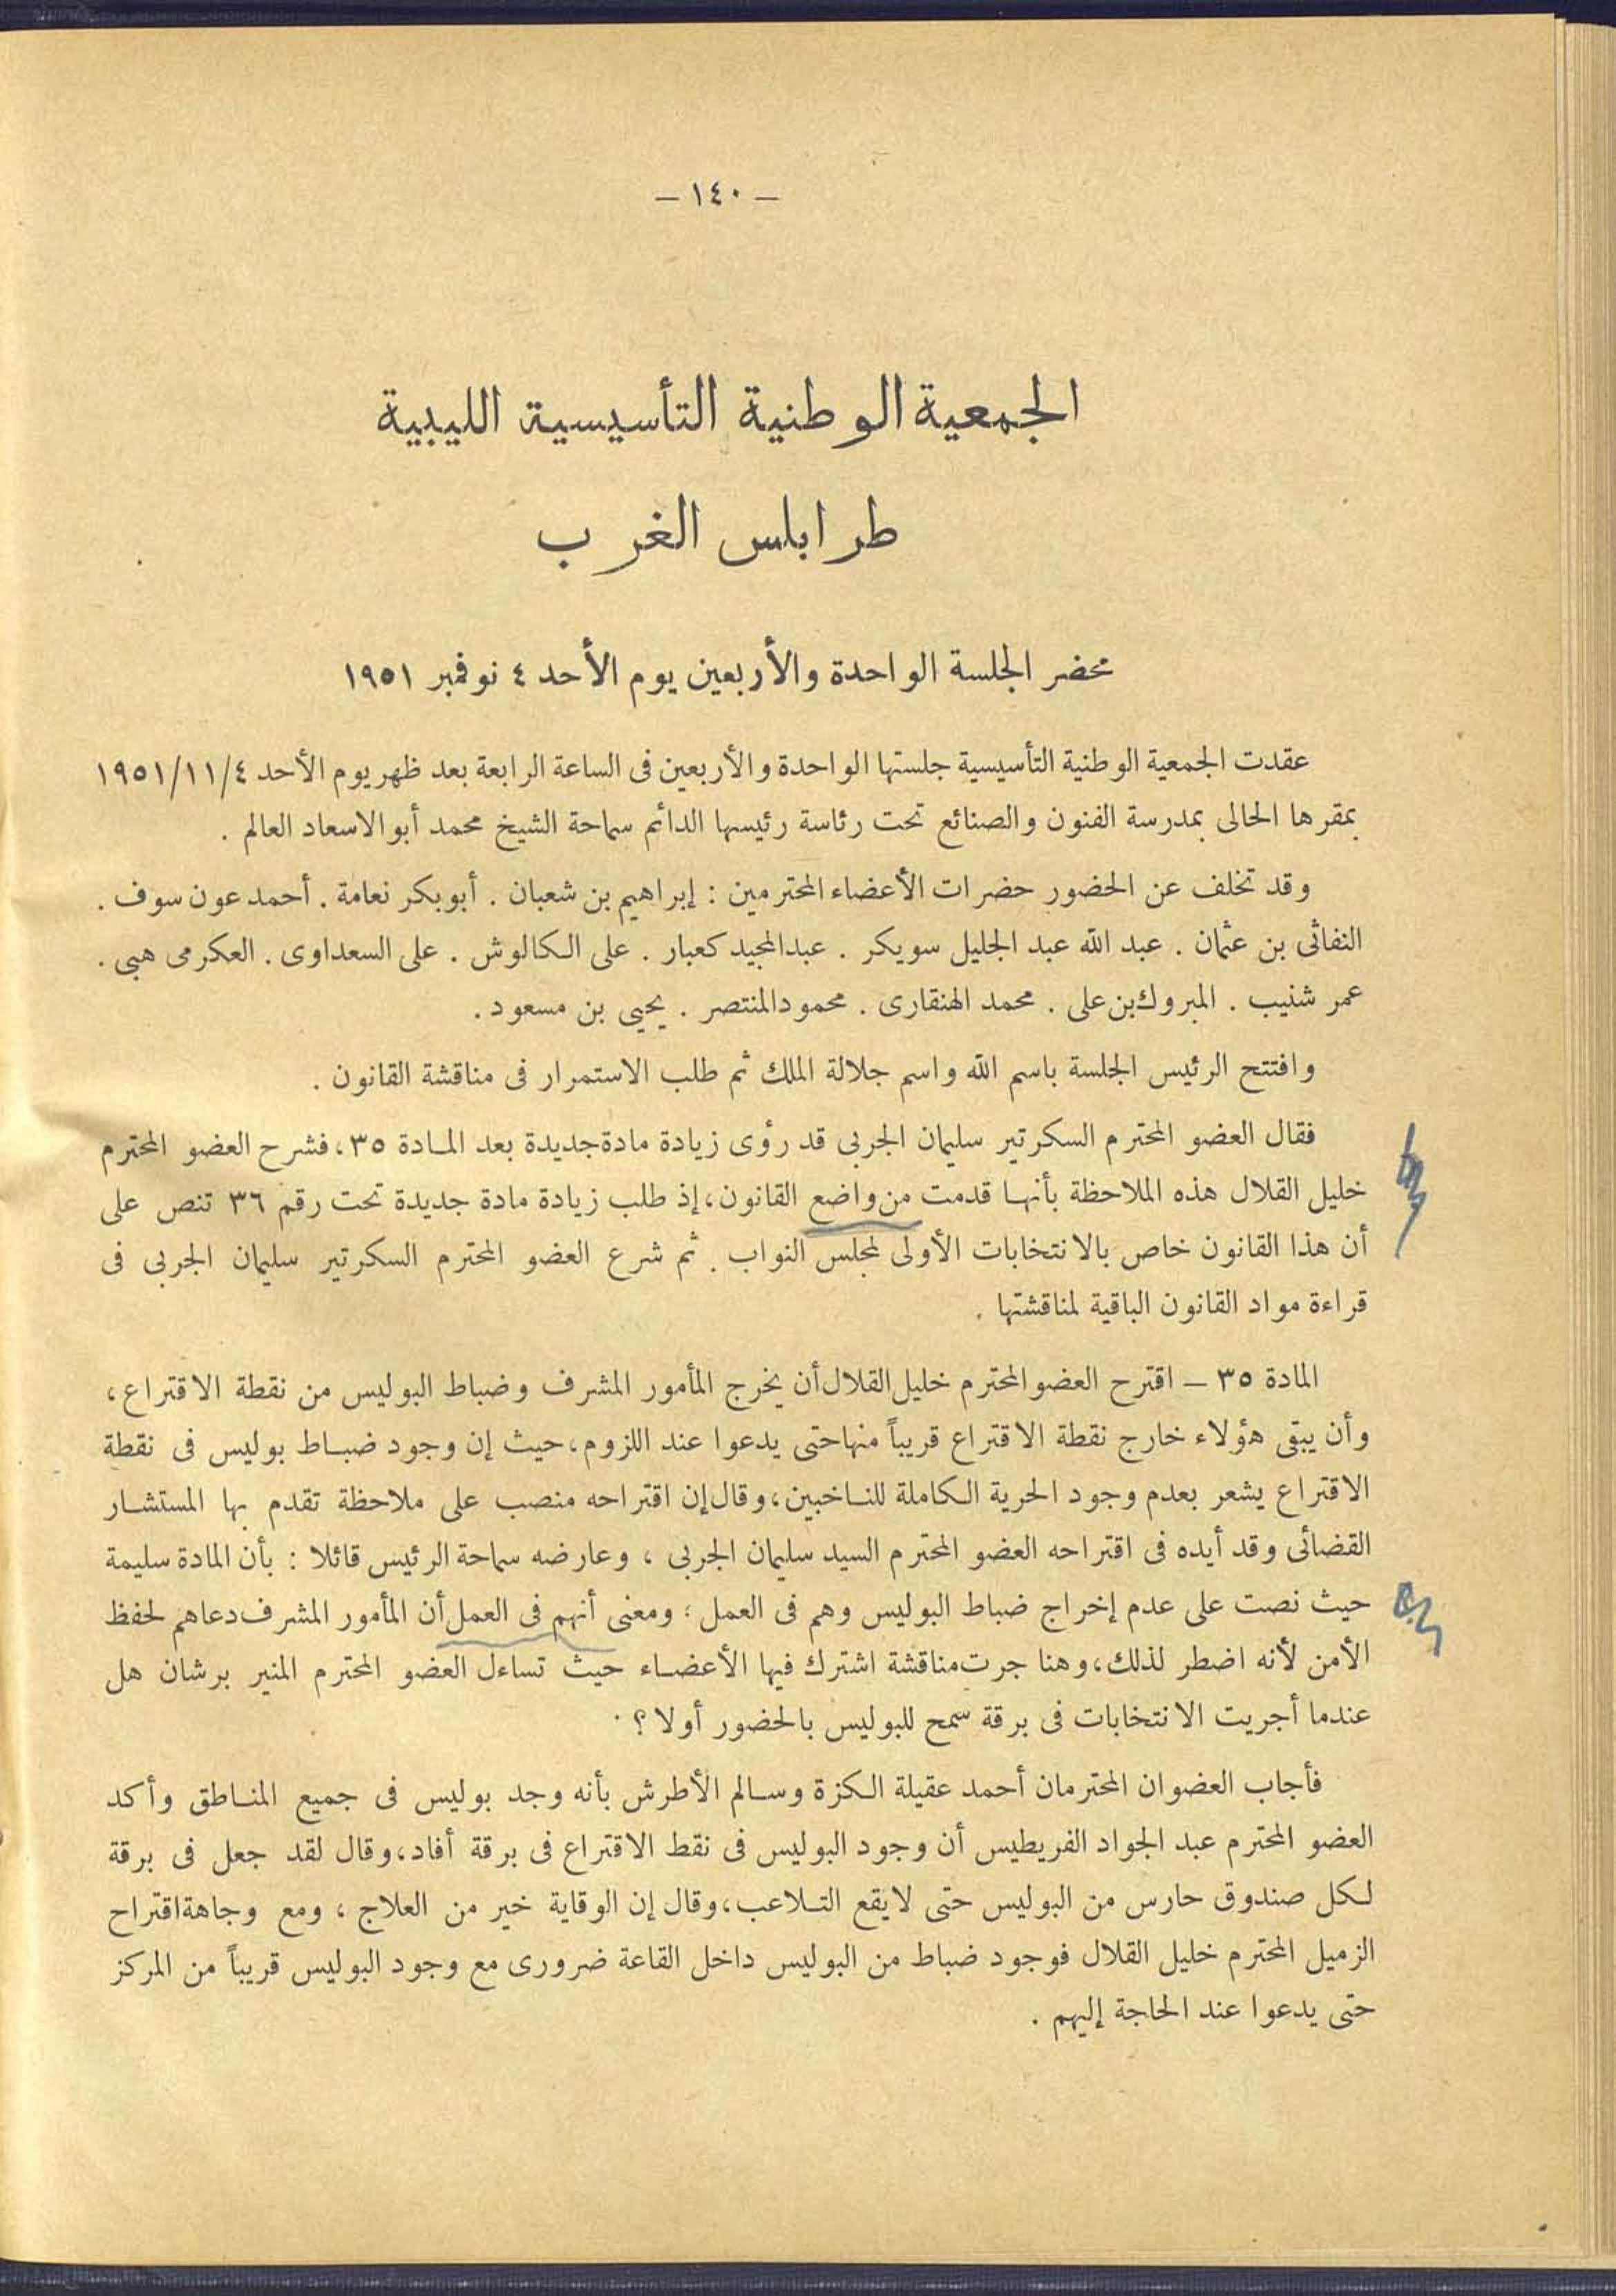 — ١٤٠ —
الجمعية الوطنية التأسيسية الليبية
طرابلس الغرب
محضر الجلسة الواحدة والأربعين يوم الأحد ٤ نوفمبر ١٩٥١
عقدت الجمعية الوطنية التأسيسية جلستها الواحدة والأربعين فى الساعة الرابعة بعد ظهر يوم الأحد ١٩٥١/١١/٤
بمقرها الحالى بمدرسة الفنون والصنائع تحت رئاسة رئيسها الدائم سماحة الشيخ محمد أبو الاسعاد العالم .
وقد تخلف عن الحضور حضرات الأعضاء المحترمين : إبراهيم بن شعبان . أبو بكر نعامة . أحمد عون سوف .
النفاثى بن عثمان . عبد الله عبد الجليل سويكر . عبد المجيد كعبار . على الكالوش . على السعداوى . العكرمى هبى .
عمر شنيب . المبروك بن على . محمد الهنقارى . محمود المنتصر . يحيى بن مسعود .
وافتتح الرئيس الجلسة باسم الله واسم جلالة الملك ثم طلب الاستمرار فى مناقشة القانون .
فقال العضو المحترم السكرتير سليمان الجربى قد رؤى زيادة مادة جديدة بعد المادة ٣٥ ، فشرح العضو المحترم
خليل القلال هذه الملاحظة بأنها قدمت من واضع القانون ، إذ طلب زيادة مادة جديدة تحت رقم ٣٦ تنص على
أن هذا القانون خاص بالانتخابات الأولى لمجلس النواب . ثم شرع العضو المحترم السكرتير سليمان الجربى فى
قراءة مواد القانون الباقية لمناقشتها .
المادة ٣٥ — اقترح العضو المحترم خليل القلال أن يخرج المأمور المشرف وضباط البوليس من نقطة الاقتراع ،
وأن يبقى هؤلاء خارج نقطة الاقتراع قريباً منها حتى يدعوا عند اللزوم ، حيث إن وجود ضباط بوليس فى نقطة
الاقتراع يشعر بعدم وجود الحرية الكاملة للناخبين ، وقال إن اقتراحه منصب على ملاحظة تقدم بها المستشار
القضائى وقد أيده فى اقتراحه العضو المحترم السيد سليمان الجربى ، وعارضه سماحة الرئيس قائلا : بأن المادة سليمة
حيث نصت على عدم إخراج ضباط البوليس وهم فى العمل ؛ ومعنى أنهم فى العمل أن المأمور المشرف دعاهم لحفظ
الأمن لأنه اضطر لذلك ، وهنا جرت مناقشة اشترك فيها الأعضاء حيث تساءل العضو المحترم المنير برشان هل
عندما أجريت الانتخابات فى برقة سمح للبوليس بالحضور أولا ؟ .
فأجاب العضوان المحترمان أحمد عقيلة الكزة وسالم الأطرش بأنه وجد بوليس فى جميع المناطق وأكد
العضو المحترم عبد الجواد الفريطيس أن وجود البوليس فى نقط الاقتراع فى برقة أفاد ، وقال لقد جعل فى برقة
لكل صندوق حارس من البوليس حتى لا يقع التلاعب ، وقال إن الوقاية خير من العلاج ، ومع وجاهة اقتراح
الزميل المحترم خليل القلال فوجود ضباط من البوليس داخل القاعة ضرورى مع وجود البوليس قريباً من المركز
حتى يدعوا عند الحاجة إليهم .